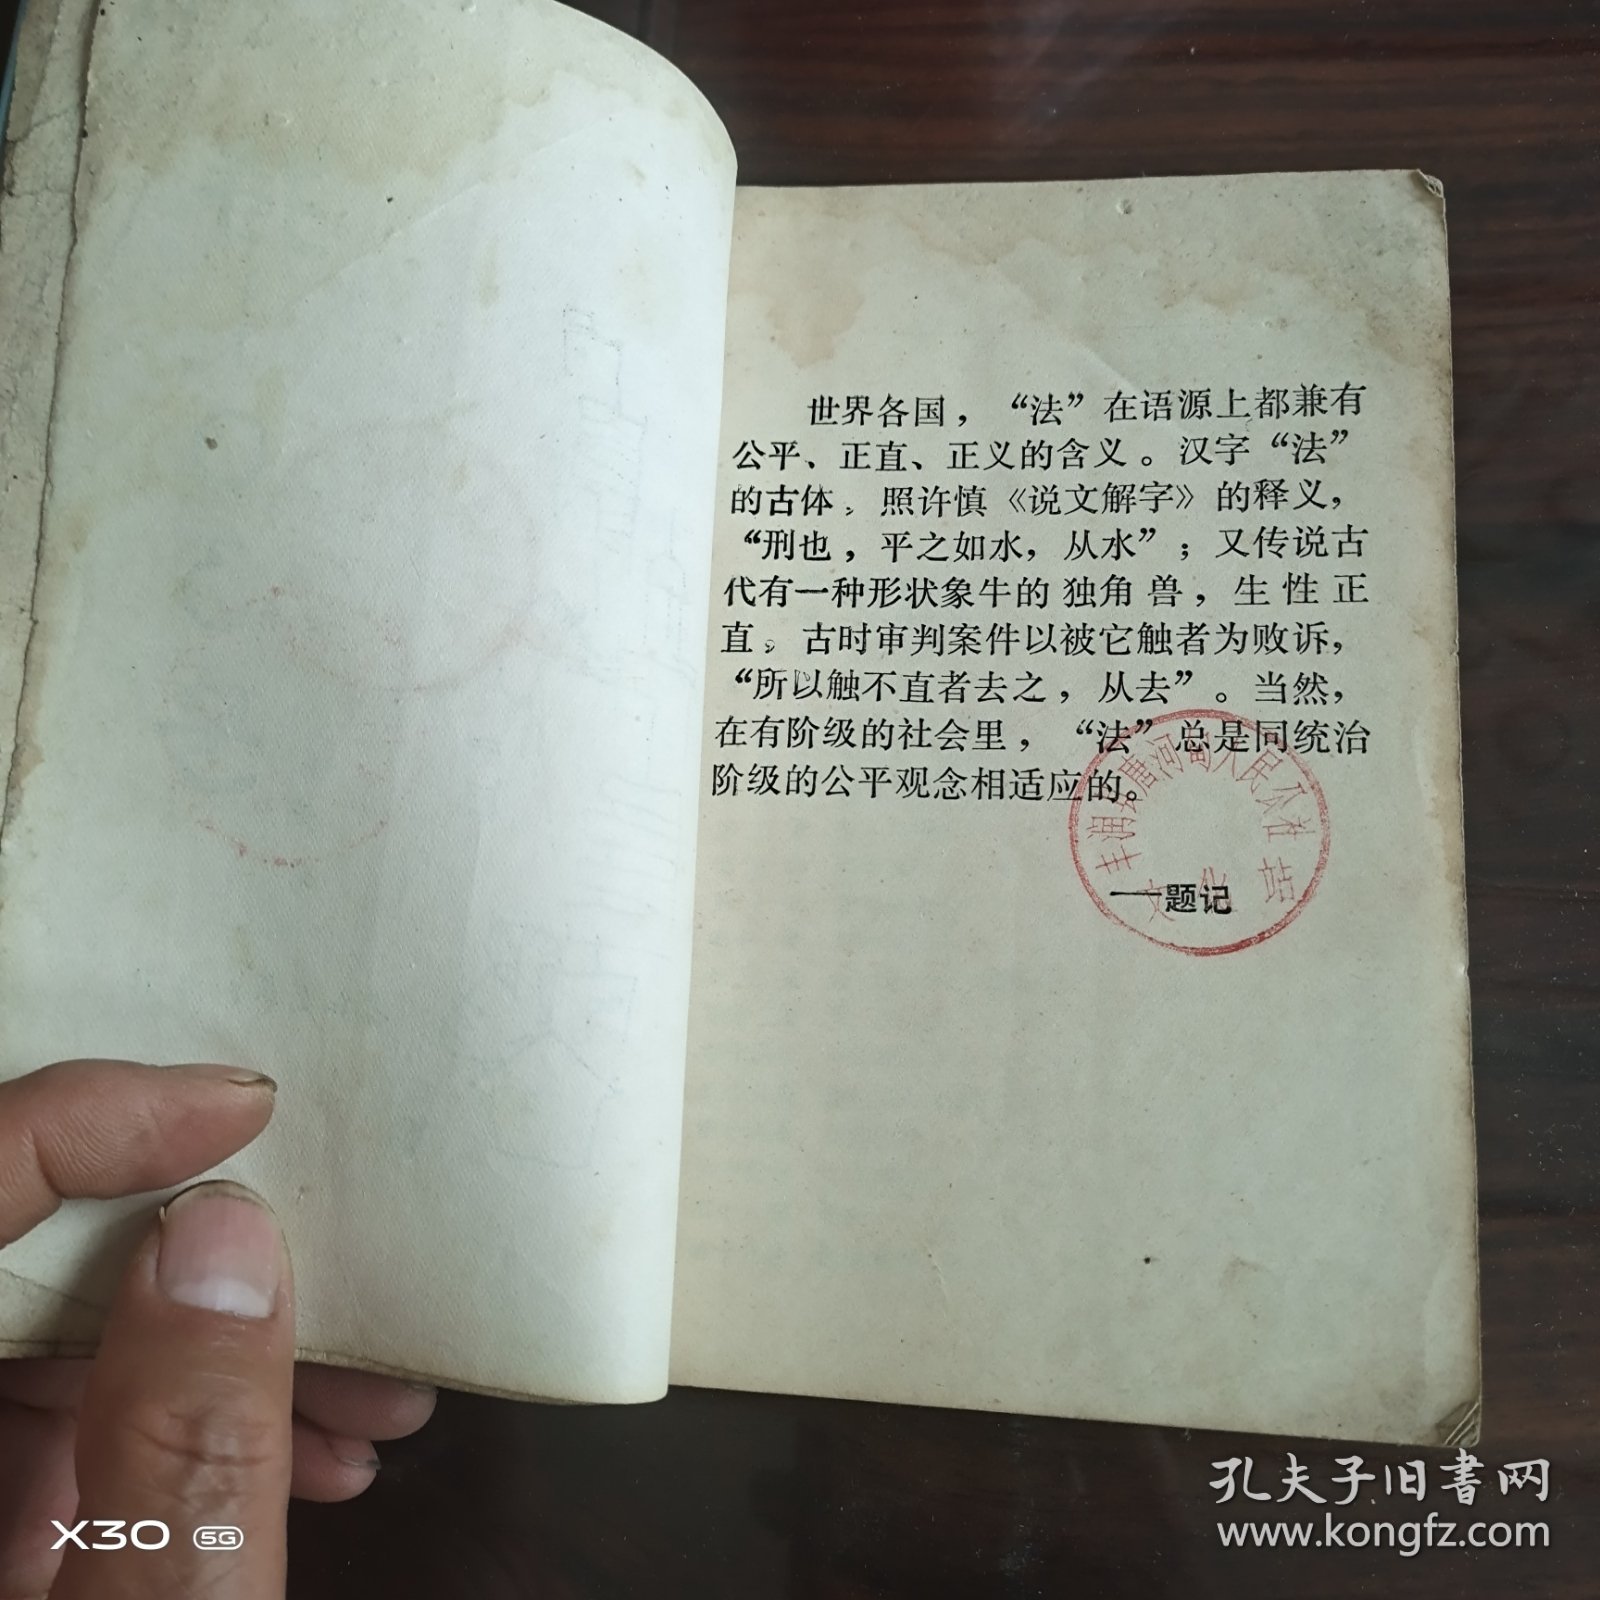 世界各国，“法”在语源上都兼有
公平、正直、正义的含义。汉字“法”
的古体，照许慎《说文解字》的释义，
“刑也，平之如水，从水”；又传说古
代有一种形状象牛的独角兽，生性正
直，古时审判案件以被它触者为败诉，
“所以触不直者去之，从去”。当然，
在有阶级的社会里，“法”总是同统治
阶级的公平观念相适应的。
——题记
丰润县唐河甸人民公社
文化站
孔夫子旧书网
www.kongfz.com
X30 5G